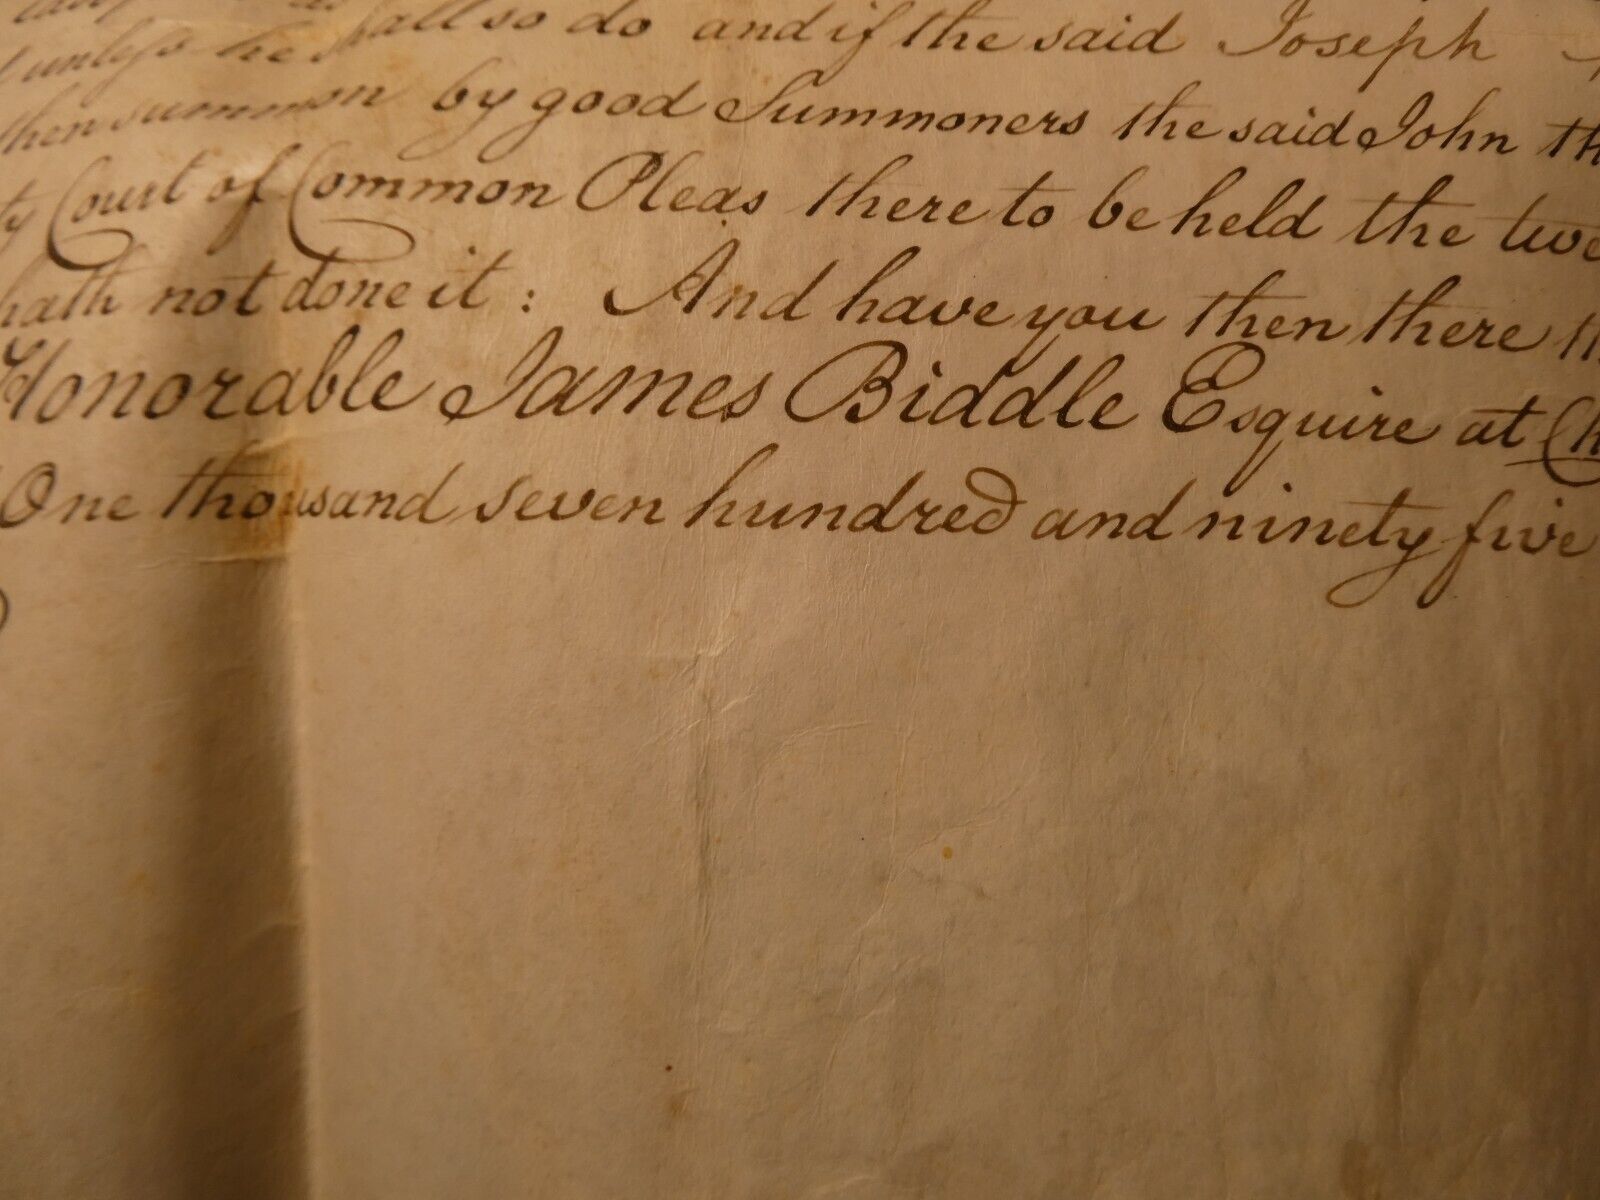 unless he shall so do and if the said Joseph
then summon by good Summoners the said John th
ty Court of Common Pleas there to be held the twe
hath not done it : And have you then there th
Honorable James Biddle Esquire at Ch
One thousand seven hundred and ninety five